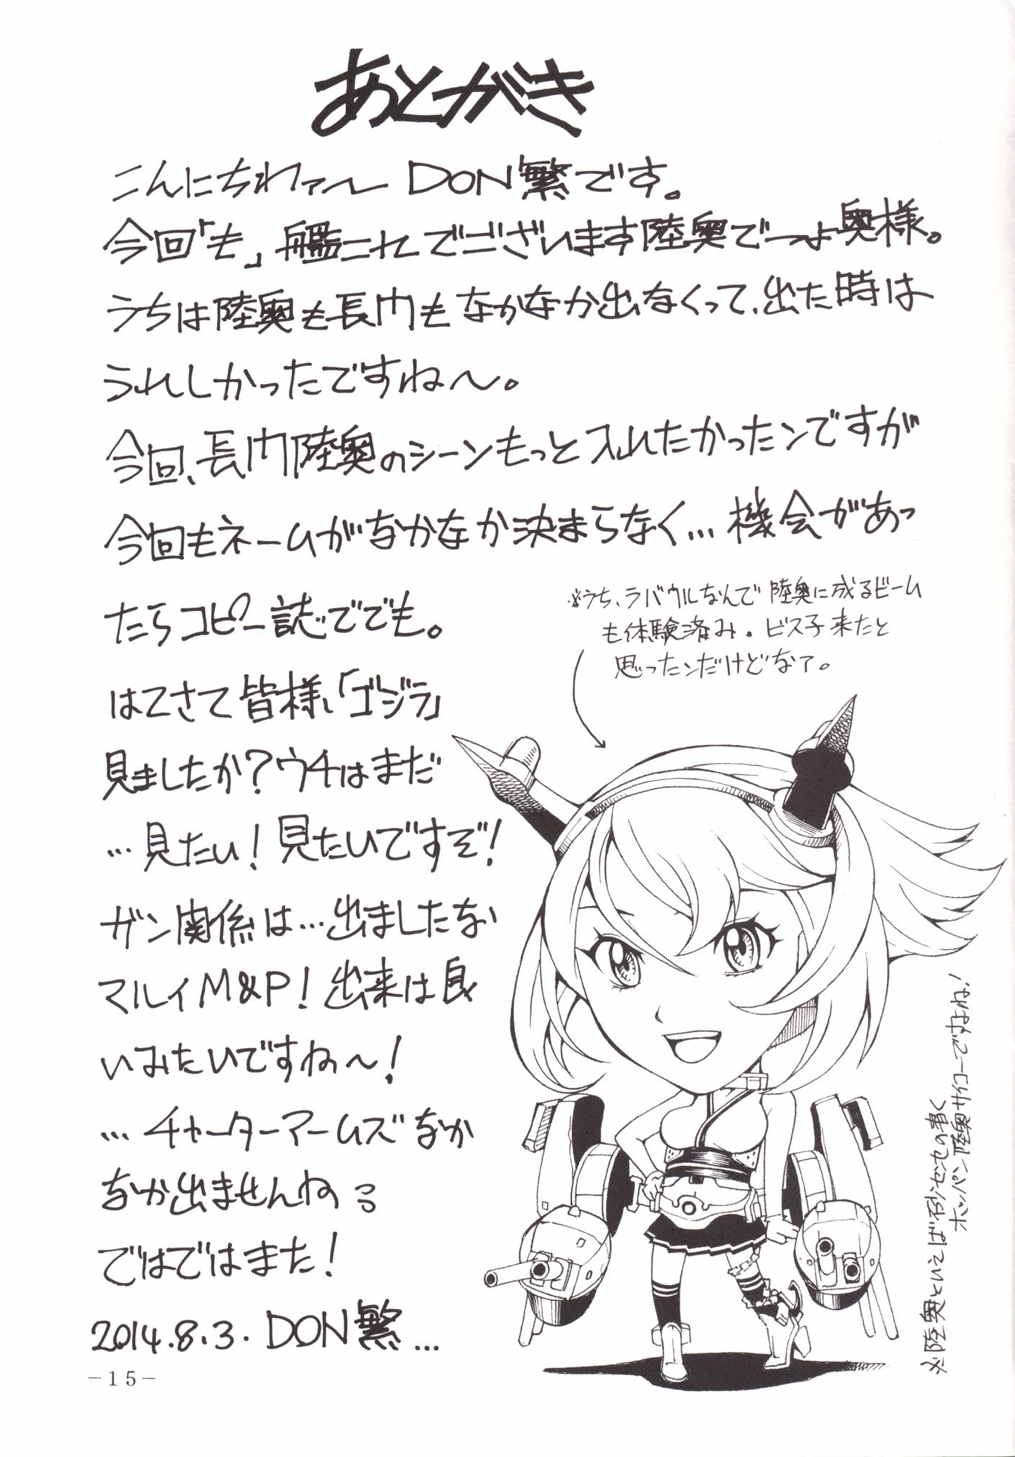 あとがき
こんにちわァ～ DON繁です。
今回「も」艦これでございます陸奥でっよ奥様。
うちは陸奥も長門もなかなか出なくって、出た時は
うれしかったですね～。
今回、長門陸奥のシーンもっと入れたかったンですが
今回もネームがなかなか決まらなく…機会があっ
たらコピー誌ででも。
※うち、ラバウルなんで陸奥に成るビーム
も体験済み。ビス子来たと
思ったンだけどなァ。
はてさて皆様、「ゴジラ」
見ましたか？ウチはまだ
…見たい！見たいですぞ！
ガン関係は…出ましたな
マルイM&P！出来は良
いみたいですね～！
…チャーターアームズなか
なか出ませんねっ
ではではまた！
2014.8.3. DON繁…
※陸奥といえば砂ンセの書く
ホッパン陸奥サイコーですよね！
－15－